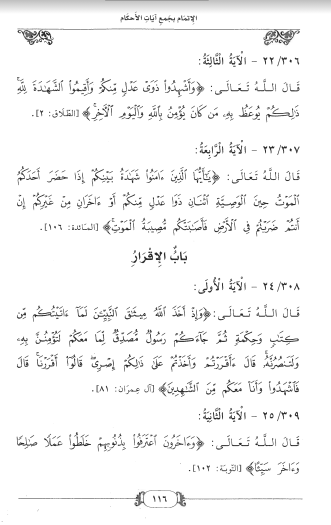 الإتمام بجمع آيات الأحكام
٢٢/٣٠٦ - الآيَةُ الثَّالِثَةُ:
قَالَ اللَّهُ تَعَالَى: ﴿وَأَشْهِدُوا ذَوَىْ عَدْلٍ مِّنكُمْ وَأَقِيمُوا الشَّهَٰدَةَ لِلَّهِ
ذَٰلِكُمْ يُوعَظُ بِهِ، مَن كَانَ يُؤْمِنُ بِاللَّهِ وَالْيَوْمِ الْآخِرِ﴾ [الطَّلاق: ٢].
٢٣/٣٠٧ - الآيَةُ الرَّابِعَةُ:
قَالَ اللَّهُ تَعَالَى: ﴿يَٰٓأَيُّهَا الَّذِينَ ءَامَنُوا شَهَٰدَةُ بَيْنِكُمْ إِذَا حَضَرَ أَحَدَكُمُ
الْمَوْتُ حِينَ الْوَصِيَّةِ اثْنَانِ ذَوَا عَدْلٍ مِّنكُمْ أَوْ ءَاخَرَانِ مِنْ غَيْرِكُمْ إِنْ
أَنتُمْ ضَرَبْتُمْ فِى الْأَرْضِ فَأَصَٰبَتْكُم مُّصِيبَةُ الْمَوْتِ﴾ [المائدة: ١٠٦].
بَابُ الإِقْرَارِ
٢٤/٣٠٨ - الآيَةُ الأُولَى:
قَالَ اللَّهُ تَعَالَى: ﴿وَإِذْ أَخَذَ اللَّهُ مِيثَٰقَ النَّبِيِّينَ لَمَا ءَاتَيْتُكُم مِّن
كِتَٰبٍ وَحِكْمَةٍ ثُمَّ جَاءَكُمْ رَسُولٌ مُّصَدِّقٌ لِّمَا مَعَكُمْ لَتُؤْمِنُنَّ بِهِ
وَلَتَنصُرُنَّهُ قَالَ ءَأَقْرَرْتُمْ وَأَخَذْتُمْ عَلَىٰ ذَٰلِكُمْ إِصْرِى قَالُوا أَقْرَرْنَا قَالَ
فَاشْهَدُوا وَأَنَا مَعَكُم مِّنَ الشَّٰهِدِينَ﴾ [آل عِمرَان: ٨١].
٢٥/٣٠٩ - الآيَةُ الثَّانِيَةُ:
قَالَ اللَّهُ تَعَالَى: ﴿وَءَاخَرُونَ اعْتَرَفُوا بِذُنُوبِهِمْ خَلَطُوا عَمَلًا صَٰلِحًا
وَءَاخَرَ سَيِّئًا﴾ [التوبَة: ١٠٢].
١١٦